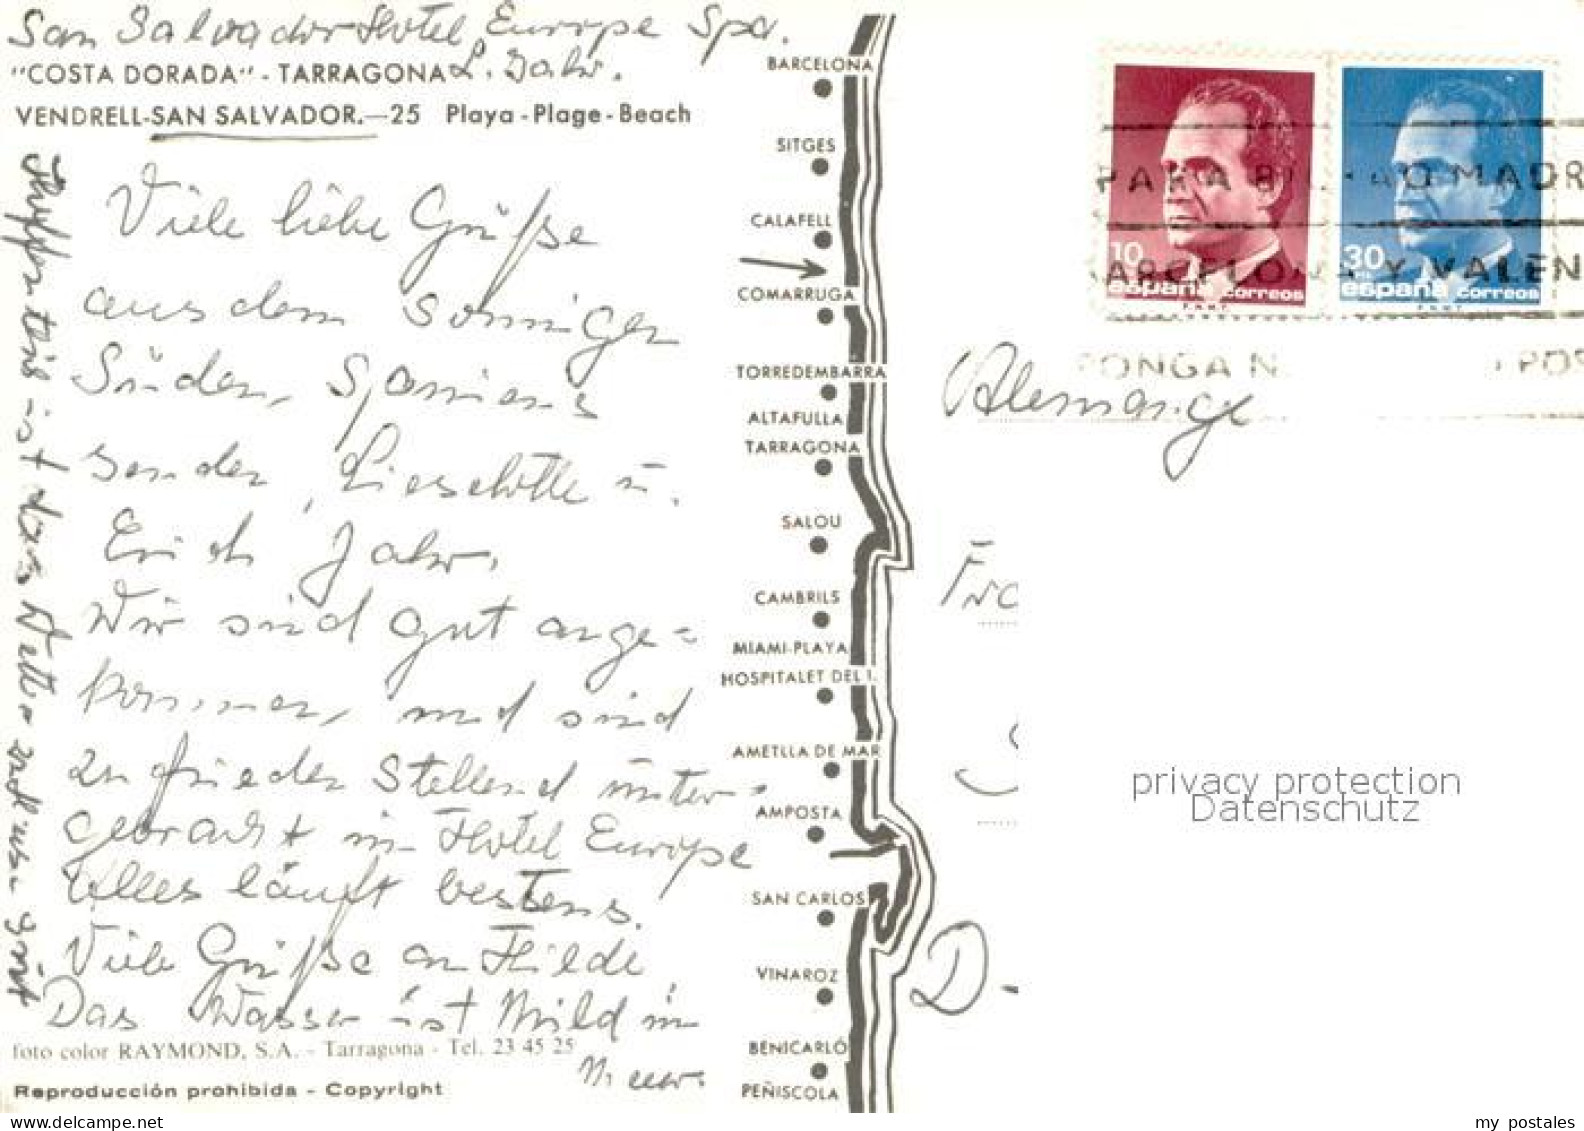 San Salvador Hotel Europe Spa.
L. Jahr.
"COSTA DORADA" - TARRAGONA
VENDRELL-SAN SALVADOR.—25 Playa - Plage - Beach
Viele liebe Grüße
aus dem Sonnigen
Süden, Spaniens
senden, Lieselotte u.
Erich Jahr.
Wir sind gut ange=
kommen, und sind
zufrieden Stellend unter=
gebracht im Hotel Europe
Alles läuft bestens.
Viele Grüße an Hilde
Das Wasser ist Mild im
Meer.
ist das Wetter gut
foto color RAYMOND, S.A. - Tarragona - Tel. 23 45 25
Reproducción prohibida - Copyright
BARCELONA
SITGES
CALAFELL
COMARRUGA
TORREDEMBARRA
ALTAFULLA
TARRAGONA
SALOU
CAMBRILS
MIAMI-PLAYA
HOSPITALET DEL I.
AMETLLA DE MAR
AMPOSTA
SAN CARLOS
VINAROZ
BENICARLÓ
PEÑISCOLA
10
españa correos
F.N.M.T.
30
PTA
españa correos
F.N.M.T.
PARA BILBAO MADR
BARCELONA Y VALEN
PONGA N
POS
Alemange
Fra
D-
privacy protection
Datenschutz
my postales
www.delcampe.net